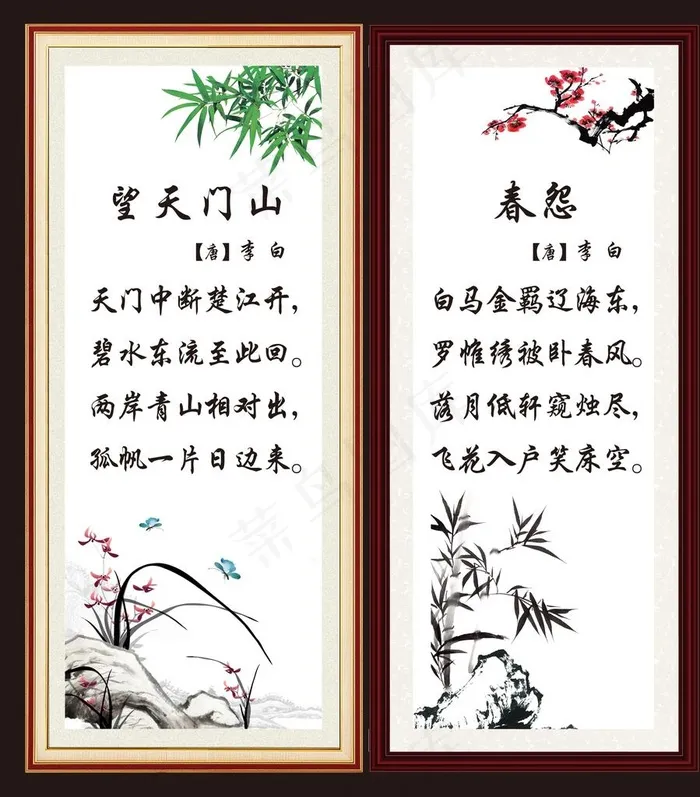 望天门山
【唐】李 白
天门中断楚江开，
碧水东流至此回。
两岸青山相对出，
孤帆一片日边来。
春怨
【唐】李 白
白马金羁辽海东，
罗帷绣被卧春风。
落月低轩窥烛尽，
飞花入户笑床空。